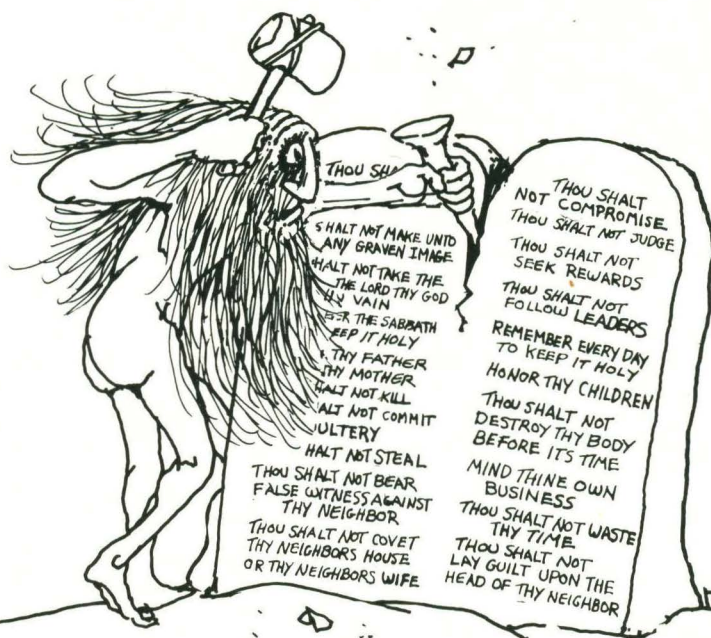 THOU SHA
SHALT NOT MAKE UNTO
ANY GRAVEN IMAGE
HALT NOT TAKE THE
THE LORD THY GOD
VAIN
THE SABBATH
EEP IT HOLY
THY FATHER
THY MOTHER
HALT NOT KILL
ALT NOT COMMIT
ULTERY
HALT NOT STEAL
THOU SHALT NOT BEAR
FALSE WITNESS AGAINST
THY NEIGHBOR
THOU SHALT NOT COVET
THY NEIGHBORS HOUSE
OR THY NEIGHBORS WIFE
THOU SHALT
NOT COMPROMISE
THOU SHALT NOT JUDGE
THOU SHALT NOT
SEEK REWARDS
THOU SHALT NOT
FOLLOW LEADERS
REMEMBER EVERY DAY
TO KEEP IT HOLY
HONOR THY CHILDREN
THOU SHALT NOT
DESTROY THY BODY
BEFORE ITS TIME
MIND THINE OWN
BUSINESS
THOU SHALT NOT WASTE
THY TIME
THOU SHALT NOT
LAY GUILT UPON THE
HEAD OF THY NEIGHBOR